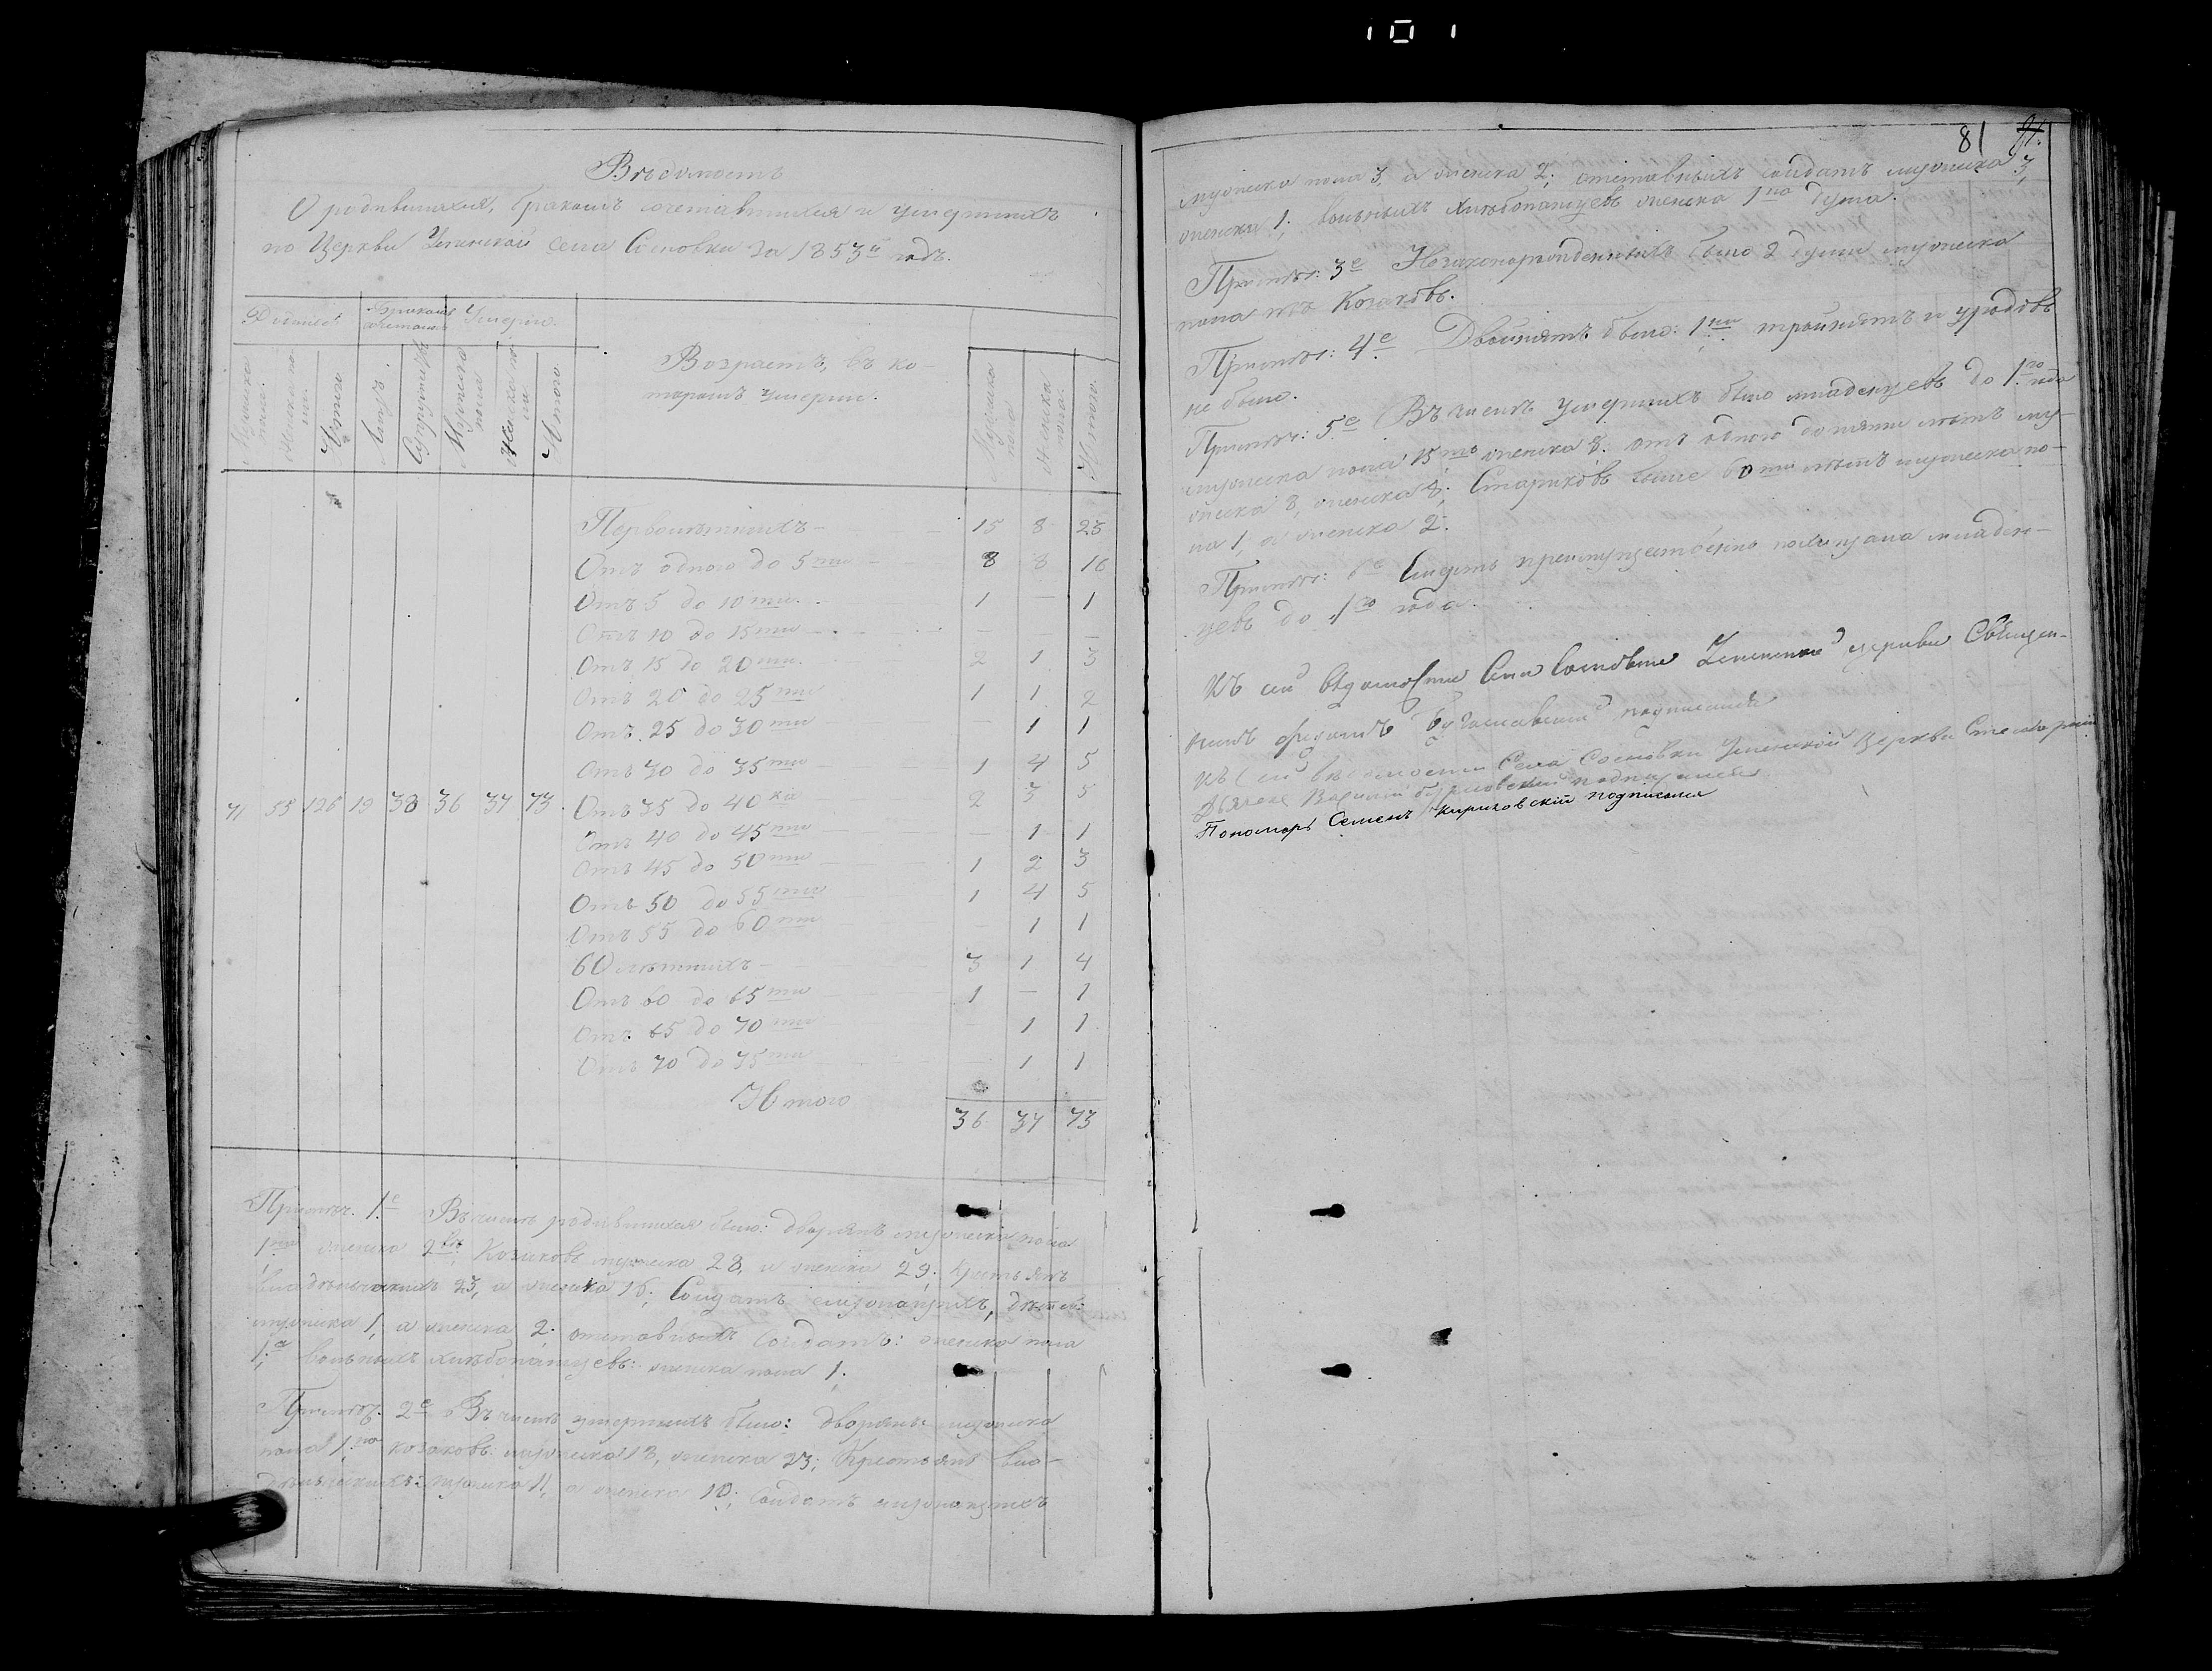 101
Вѣдомость
О родившихся, бракомъ сочетавшихся и умершихъ
по Церкви Успенской села Сосновки за 1853й годъ.
Родилось Бракомъ сочетались Умерли.
Мужеска пола. Женска пола. Итого Лицъ. Супружествъ Мужеска пола Женска пола Итого
Возрастъ, въ ко-
торомъ умерли.
Мужеска пола Женска пола. Итого.
Перволѣтнихъ 15 8 23
Отъ одного до 5ти 8 8 16
Отъ 5 до 10ти. 1 — 1
Отъ 10 до 15ти — —
Отъ 15 до 20ти. 2 1 3
Отъ 20 до 25ти 1 1 2
Отъ 25 до 30ти — 1 1
Отъ 30 до 35ти 1 4 5
71 55 126 19 38 36 37 73. Отъ 35 до 40ка 2 3 5
Отъ 40 до 45ти — 1 1
Отъ 45 до 50ти 1 2 3
Отъ 50 до 55ти 1 4 5
Отъ 55 до 60ти — 1 1
60 лѣтнихъ 3 1 4
Отъ 60 до 65ти 1 — 1
Отъ 65 до 70ти — 1 1
Отъ 70 до 75ти — 1 1
Итого
36 37 73
Примѣч. 1е Въ числѣ родившихся было: дворянъ мужеска пола
женска Козаковъ мужеска 28, и женска 29; крестьянъ
владѣльческихъ 23, а женска 16; Солдатъ служащихъ, дѣтей
мужеска 1, а женска 2. отставныхъ Солдатъ: женска пола
1. вольныхъ хлѣбопашцевъ: женска пола 1.
Примѣч. 2е Въ числѣ умершихъ было: дворянъ мужеска
пола 1го козаковъ: мужеска 18, женска 23; Крестьянъ вла-
дѣльческихъ: мужеска 11, а женска 10; Солдатъ служащихъ
81
мужеска пола 3, а женска 2; отставныхъ солдатъ мужеска 3,
женска 1; вольныхъ хлѣбопашцевъ женска 1на душа.
Примѣч: 3е Незаконорожденныхъ было 2 души мужеска
пола изъ Козаковъ.
Примѣч: 4е Двойнятъ было: 1ни тройнятъ и уродовъ
не было.
Примѣч: 5е Въ числѣ умершихъ было младенцевъ до 1го года
мужеска пола 15ть женска 8: отъ одного до пяти лѣтъ му-
жеска 8, женска 8. Стариковъ выше 60ти лѣтъ мужеска по-
ла 1, а женска 2.
Примѣч: 6е Смерть преимущественно похищала младен-
цевъ до 1го года.
Къ сей вѣдомости Села Сосновки Успенской церкви Священ-
никъ подписался
Къ сей вѣдомости Села Сосновки Успенской Церкви
Дьячокъ Василій подписался
Пономарь Семенъ Кириковскій подписался